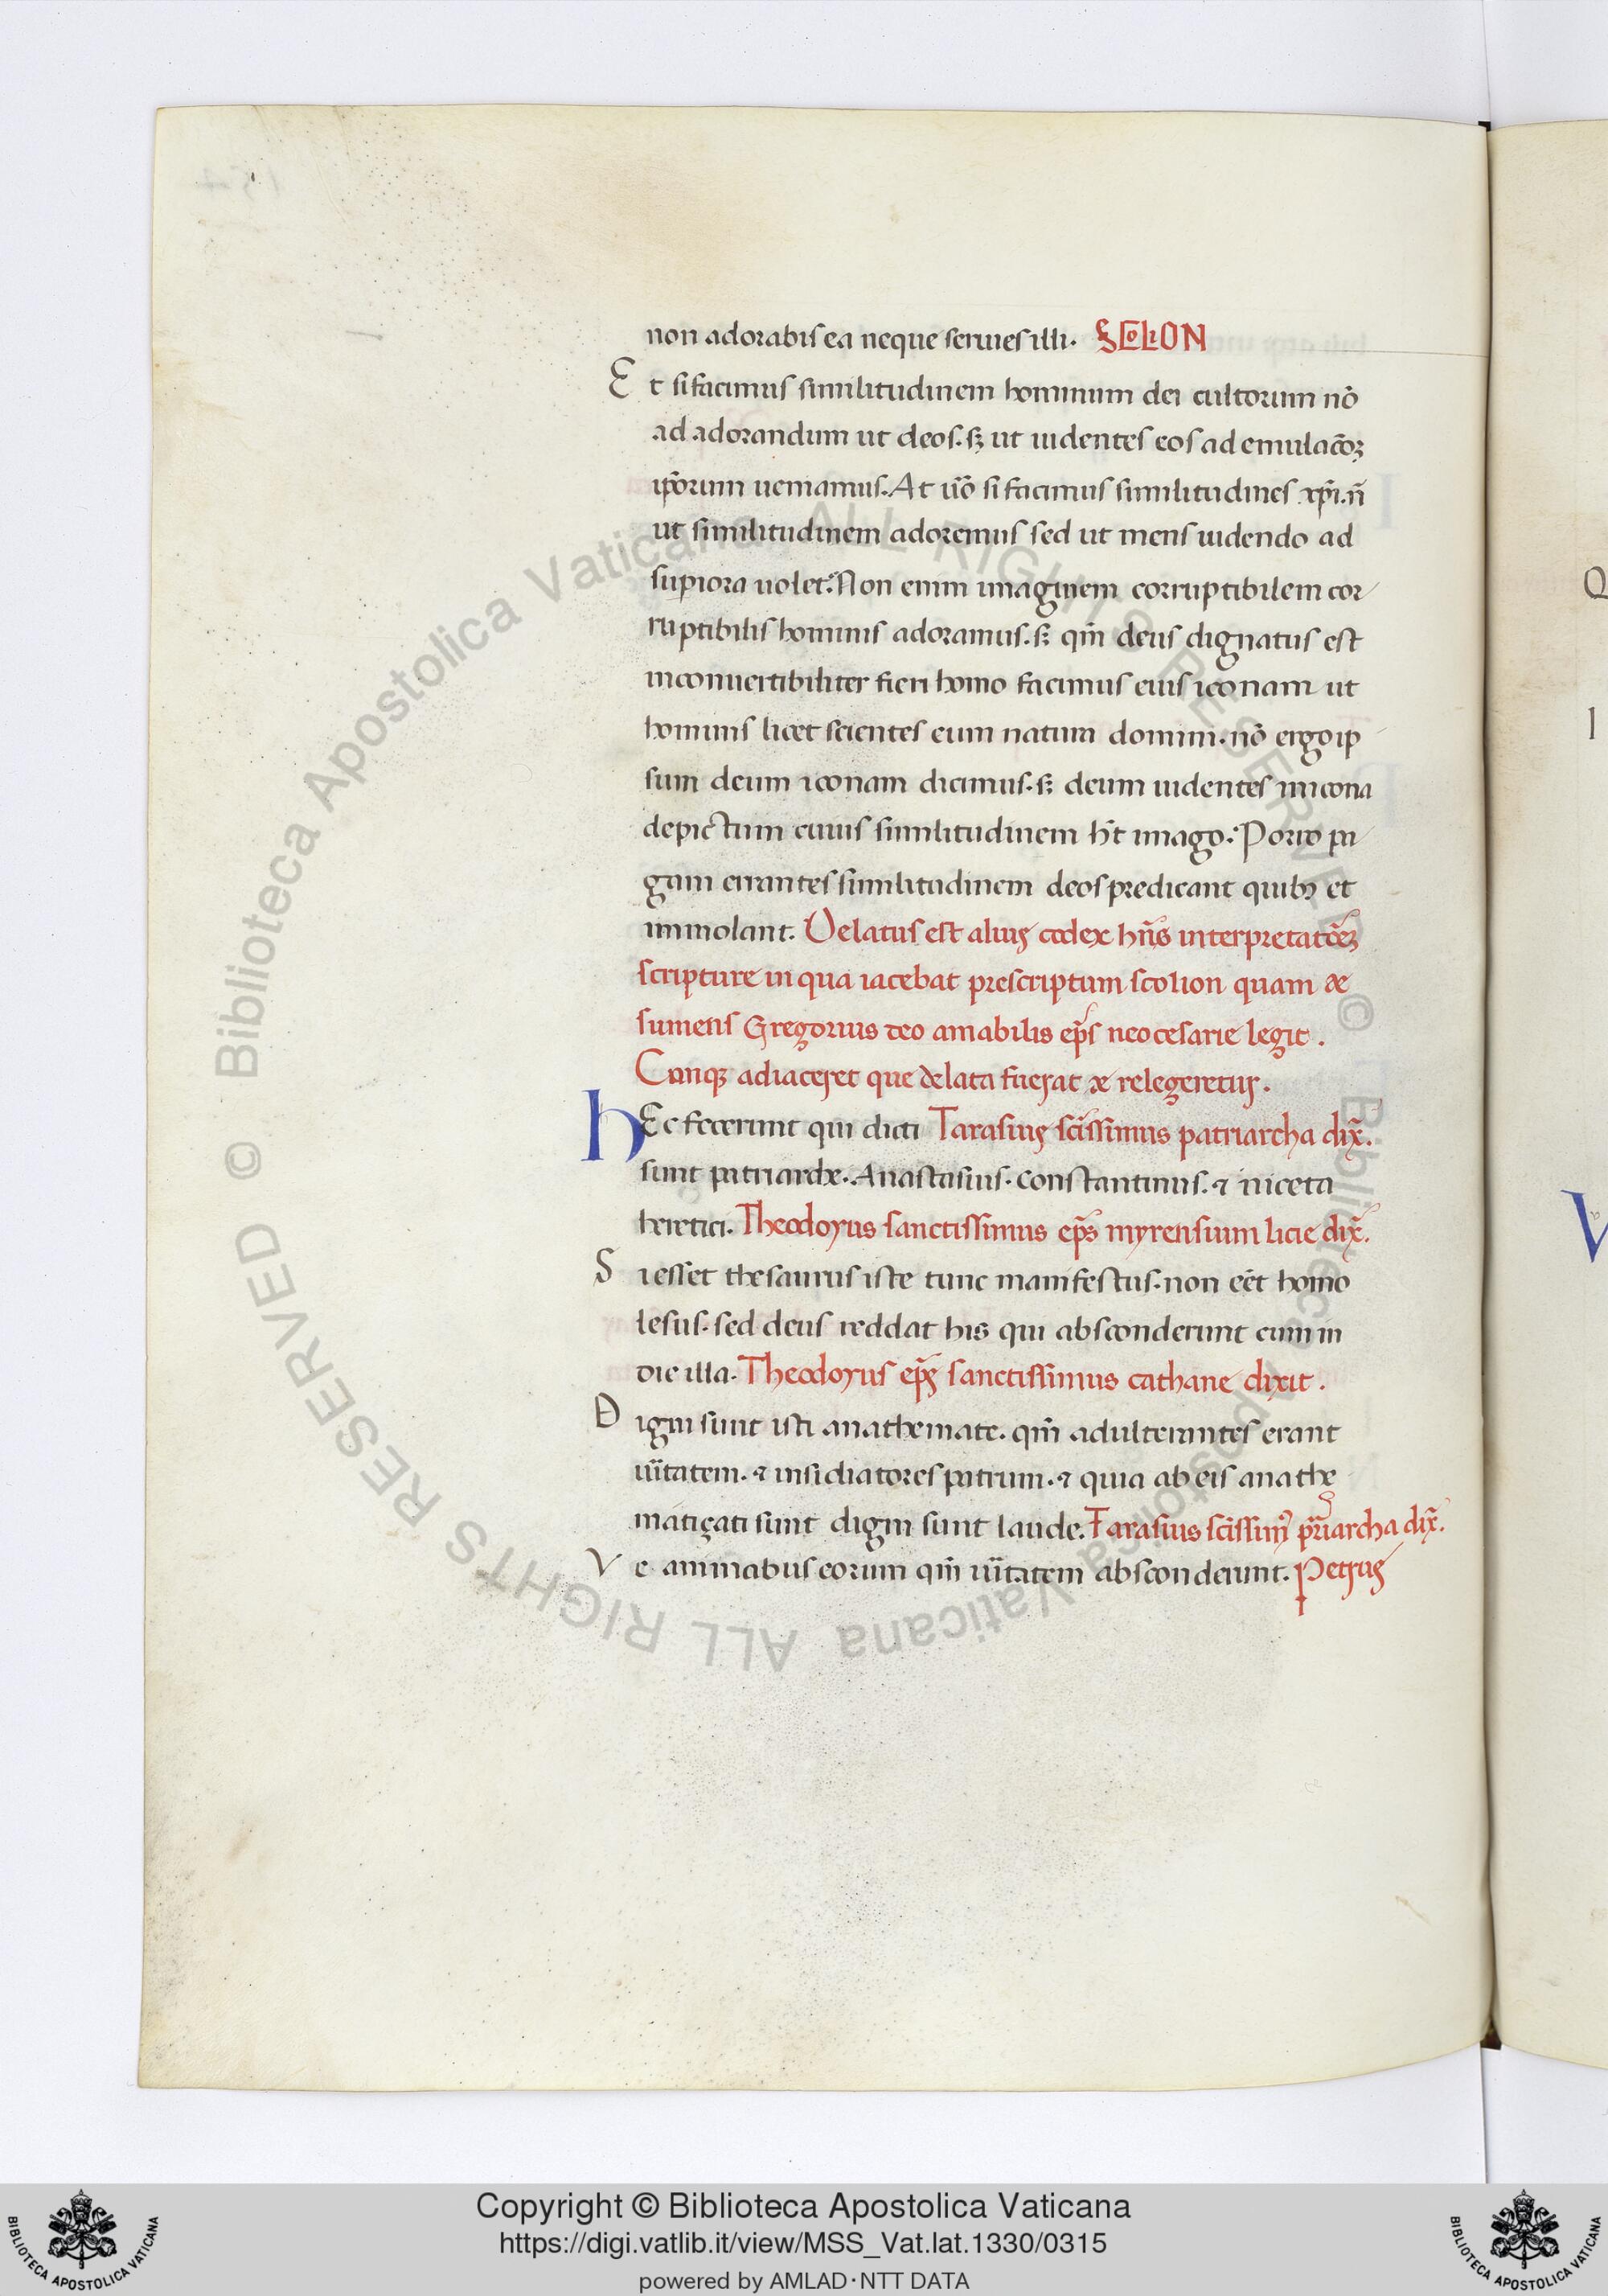 non adorabis ea neque seruies illi. SCOLION
Et si facimus similitudinem hominum dei cultorum nō
ad adorandum ut deos. sꝫ ut uidentes eos ad emulac̄oꝫ
ip̄orum ueniamus. At ūo si facimus similitudines xp̄i. n̄
ut similitudinem adoremus sed ut mens uidendo ad
supiora uolet. Non enim imaginem corruptibilem cor
ruptibilis hominis adoramus. sꝫ qm̄ deus dignatus est
inconuertibiliter fieri homo facimus eius iconam ut
hominis licet scientes eum natum domini. nō ergo ip
sum deum iconam dicimus. sꝫ deum uidentes in icona
depictum cuius similitudinem h̄t imago. Porro pa
gani errantes similitudinem deos predicant quibꝫ et
immolant. Delatus est alius codex hn̄s interpretatōeꝫ
scripture in qua iacebat prescriptum scolion quam &
sumens Gregorius teo amabilis ep̄s neocesarie legit.
Cunqꝫ adiaceret que delata fuerat & relegeretur.
HEc fecerunt qui dicti Tarasius sc̄issimus patriarcha dix̄.
sunt patriarche. Anastasius. Constantinus. ⁊ niceta
heretici. Theodorus sanctissimus ep̄s myrensium licie dix̄.
Si esset thesaurus iste tunc manifestus. non eēt homo
lesus. sed deus reddat his qui absconderunt eum in
die illa. Theodorus ep̄s sanctissimus cathane dixit.
Digni sunt isti anathemate. qm̄ adulterantes erant
ūitatem. ⁊ insidiatores patrum. ⁊ quia ab eis anathe
matiçati sunt digni sunt laude. Tarasius sc̄issimꝰ pr̄iarcha dix̄.
Ve animabus eorum qm̄ ūitatem absconderunt. Petrus
Q
I
V
© Biblioteca Apostolica Vaticana ALL RIGHTS RESERVED © Biblioteca Apostolica Vaticana ALL RIGHTS RESERVED
Copyright © Biblioteca Apostolica Vaticana
https://digi.vatlib.it/view/MSS_Vat.lat.1330/0315
powered by AMLAD·NTT DATA
BIBLIOTECA APOSTOLICA VATICANA
BIBLIOTECA APOSTOLICA VATICANA